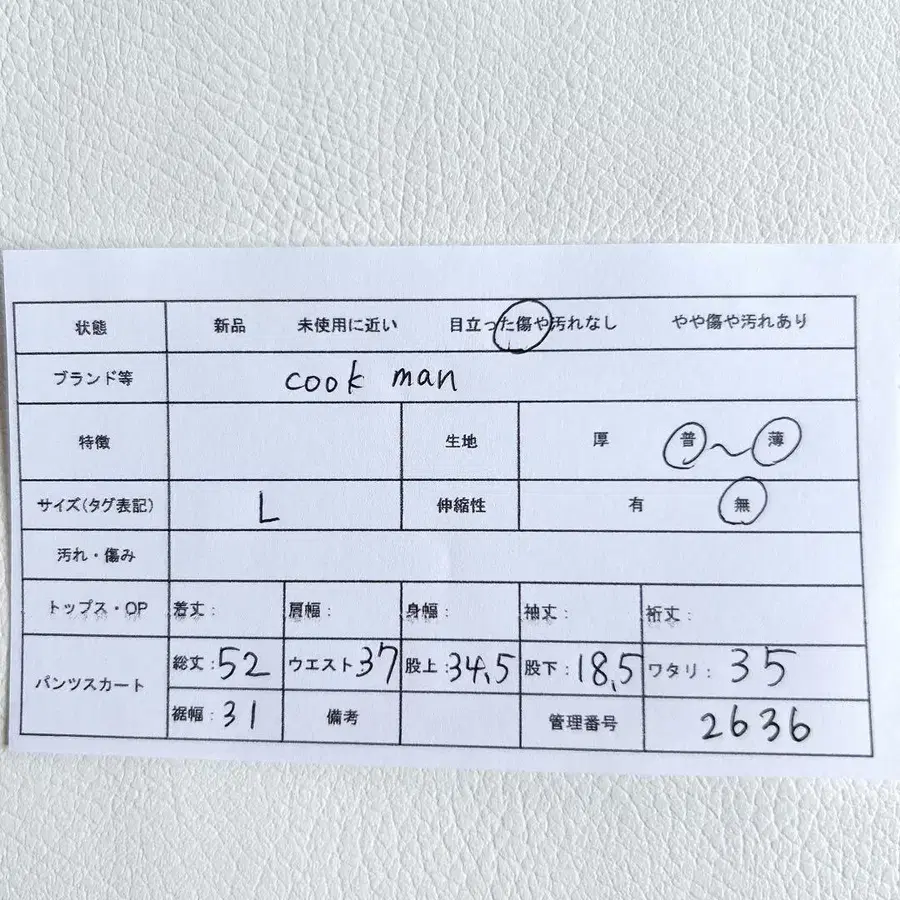 状態 新品 未使用に近い 目立った傷や汚れなし やや傷や汚れあり
ブランド等 cook man
特徴 生地 厚 普〜薄
サイズ(タグ表記) L 伸縮性 有 無
汚れ・傷み
トップス・OP 着丈: 肩幅: 身幅: 袖丈: 裄丈:
パンツスカート 総丈:52 ウエスト37 股上:34.5 股下:18.5 ワタリ:35
裾幅:31 備考 管理番号 2636